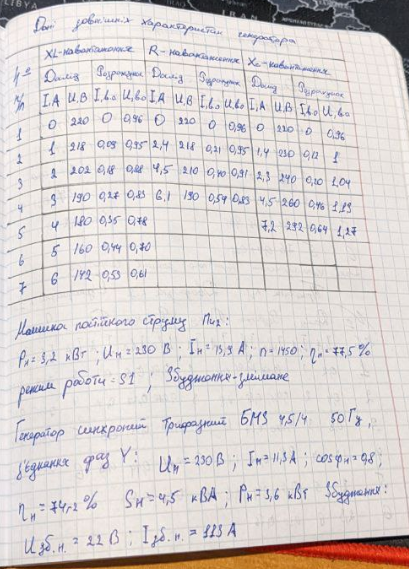 Дані зовнішніх характеристик генератора
XL-навантаження R-навантаження Xc-навантаження
№ Дослід Розрахунок Дослід Розрахунок Дослід Розрахунок
п I,A U,B I,в.о U,в.о I,A U,B I,в.о U,в.о I,A U,B I,в.о U,в.о
1 0 220 0 0,96 0 220 0 0,96 0 220 0 0,96
2 1 218 0,09 0,95 2,4 218 0,21 0,95 1,4 230 0,12 1
3 2 202 0,18 0,88 4,5 210 0,40 0,91 2,3 240 0,20 1,04
4 3 190 0,27 0,83 6,1 190 0,54 0,83 4,5 260 0,46 1,13
5 4 180 0,35 0,78 7,2 292 0,64 1,27
6 5 160 0,44 0,70
7 6 142 0,53 0,61
Машина постійного струму Пн2:
Pн = 3,2 кВт ; Uн = 230 В ; Iн = 13,9 А ; n = 1450 ; ηн = 77,5 %
режим роботи = S1 ; Збудження-змішане
Генератор синхронний трифазний БМЗ 4,5/4 50 Гц ,
з'єднання фаз Y : Uн = 230 В ; Iн = 11,3 А ; cosφн = 0,8 ;
ηн = 74,2 % Sн = 4,5 кВА ; Pн = 3,6 кВт Збудження :
Uзб.н. = 22 В ; Iзб.н. = 113 А